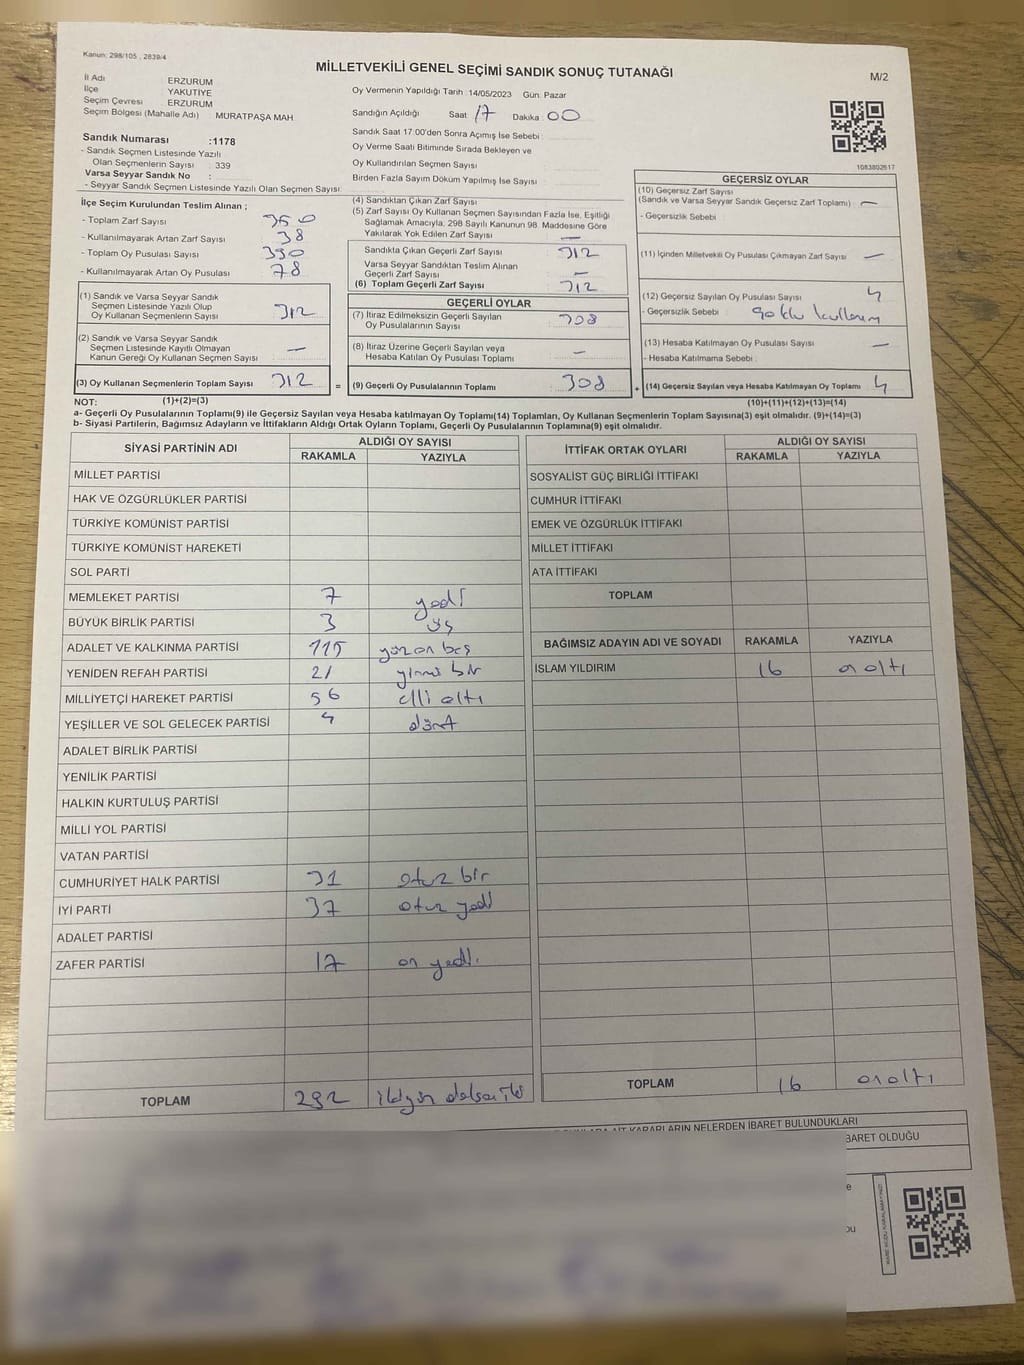 Kanun: 298/105 , 2839/4
MİLLETVEKİLİ GENEL SEÇİMİ SANDIK SONUÇ TUTANAĞI
M/2
İl Adı ERZURUM
İlçe YAKUTİYE
Seçim Çevresi ERZURUM
Seçim Bölgesi (Mahalle Adı) MURATPAŞA MAH.
Sandık Numarası :1178
- Sandık Seçmen Listesinde Yazılı
Olan Seçmenlerin Sayısı : 339
Varsa Seyyar Sandık No :
- Seyyar Sandık Seçmen Listesinde Yazılı Olan Seçmen Sayısı:
Oy Vermenin Yapıldığı Tarih : 14/05/2023 Gün: Pazar
Sandığın Açıldığı Saat 17 Dakika : 00
Sandık Saat 17:00'den Sonra Açımış İse Sebebi :
Oy Verme Saati Bitiminde Sırada Bekleyen ve
Oy Kullandırılan Seçmen Sayısı
Birden Fazla Sayım Döküm Yapılmış İse Sayısı :
1083802617
İlçe Seçim Kurulundan Teslim Alınan ;
- Toplam Zarf Sayısı 350
- Kullanılmayarak Artan Zarf Sayısı : 38
- Toplam Oy Pusulası Sayısı : 390
- Kullanılmayarak Artan Oy Pusulası : 78
(1) Sandık ve Varsa Seyyar Sandık
Seçmen Listesinde Yazılı Olup
Oy Kullanan Seçmenlerin Sayısı : 312
(2) Sandık ve Varsa Seyyar Sandık
Seçmen Listesinde Kayıtlı Olmayan
Kanun Gereği Oy Kullanan Seçmen Sayısı : —
(3) Oy Kullanan Seçmenlerin Toplam Sayısı : 312
(4) Sandıktan Çıkan Zarf Sayısı :
(5) Zarf Sayısı Oy Kullanan Seçmen Sayısından Fazla İse, Eşitliği
Sağlamak Amacıyla, 298 Sayılı Kanunun 98. Maddesine Göre
Yakılarak Yok Edilen Zarf Sayısı : —
Sandıkta Çıkan Geçerli Zarf Sayısı : 312
Varsa Seyyar Sandıktan Teslim Alınan
Geçerli Zarf Sayısı : —
(6) Toplam Geçerli Zarf Sayısı : 312
GEÇERLİ OYLAR
(7) İtiraz Edilmeksizin Geçerli Sayılan
Oy Pusulalarının Sayısı : 308
(8) İtiraz Üzerine Geçerli Sayılan veya
Hesaba Katılan Oy Pusulası Toplamı : —
= (9) Geçerli Oy Pusulalarının Toplamı : 308
GEÇERSİZ OYLAR
(10) Geçersiz Zarf Sayısı
(Sandık ve Varsa Seyyar Sandık Geçersiz Zarf Toplamı) : —
- Geçersizlik Sebebi :
(11) İçinden Milletvekili Oy Pusulası Çıkmayan Zarf Sayısı : —
(12) Geçersiz Sayılan Oy Pusulası Sayısı : 4
- Geçersizlik Sebebi : çoklu kullanım
(13) Hesaba Katılmayan Oy Pusulası Sayısı : —
- Hesaba Katılmama Sebebi :
+ (14) Geçersiz Sayılan veya Hesaba Katılmayan Oy Toplamı : 4
NOT: (1)+(2)=(3)
(10)+(11)+(12)+(13)=(14)
a- Geçerli Oy Pusulalarının Toplamı(9) ile Geçersiz Sayılan veya Hesaba katılmayan Oy Toplamı(14) Toplamları, Oy Kullanan Seçmenlerin Toplam Sayısına(3) eşit olmalıdır. (9)+(14)=(3)
b- Siyasi Partilerin, Bağımsız Adayların ve İttifakların Aldığı Ortak Oyların Toplamı, Geçerli Oy Pusulalarının Toplamına(9) eşit olmalıdır.
SİYASİ PARTİNİN ADI ALDIĞI OY SAYISI
RAKAMLA YAZIYLA
MİLLET PARTİSİ
HAK VE ÖZGÜRLÜKLER PARTİSİ
TÜRKİYE KOMÜNİST PARTİSİ
TÜRKİYE KOMÜNİST HAREKETİ
SOL PARTİ
MEMLEKET PARTİSİ 7 yedi
BÜYÜK BİRLİK PARTİSİ 3 üç
ADALET VE KALKINMA PARTİSİ 115 yüzon beş
YENİDEN REFAH PARTİSİ 21 yirmi bir
MİLLİYETÇİ HAREKET PARTİSİ 56 elli altı
YEŞİLLER VE SOL GELECEK PARTİSİ 4 dört
ADALET BİRLİK PARTİSİ
YENİLİK PARTİSİ
HALKIN KURTULUŞ PARTİSİ
MİLLİ YOL PARTİSİ
VATAN PARTİSİ
CUMHURİYET HALK PARTİSİ 31 otuz bir
İYİ PARTİ 37 otuz yedi
ADALET PARTİSİ
ZAFER PARTİSİ 17 on yedi
TOPLAM 292
İTTİFAK ORTAK OYLARI ALDIĞI OY SAYISI
RAKAMLA YAZIYLA
SOSYALİST GÜÇ BİRLİĞİ İTTİFAKI
CUMHUR İTTİFAKI
EMEK VE ÖZGÜRLÜK İTTİFAKI
MİLLET İTTİFAKI
ATA İTTİFAKI
TOPLAM
BAĞIMSIZ ADAYIN ADI VE SOYADI RAKAMLA YAZIYLA
İSLAM YILDIRIM 16 on altı
TOPLAM 16 onaltı
KARARLARIN NELERDEN İBARET BULUNDUKLARI
İBARET OLDUĞU